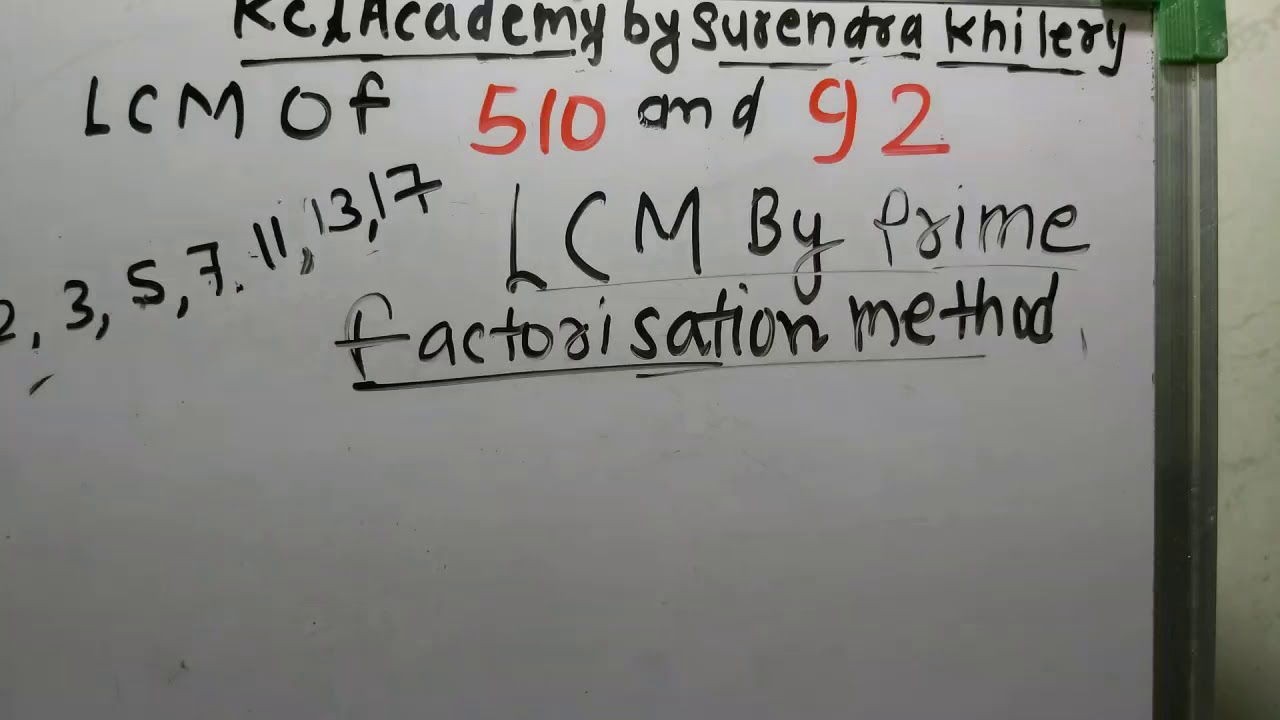 KCl Academy by Surendra Khilery
LCM Of 510 and 92
2, 3, 5, 7. 11, 13, 17
LCM By Prime
factorisation method,